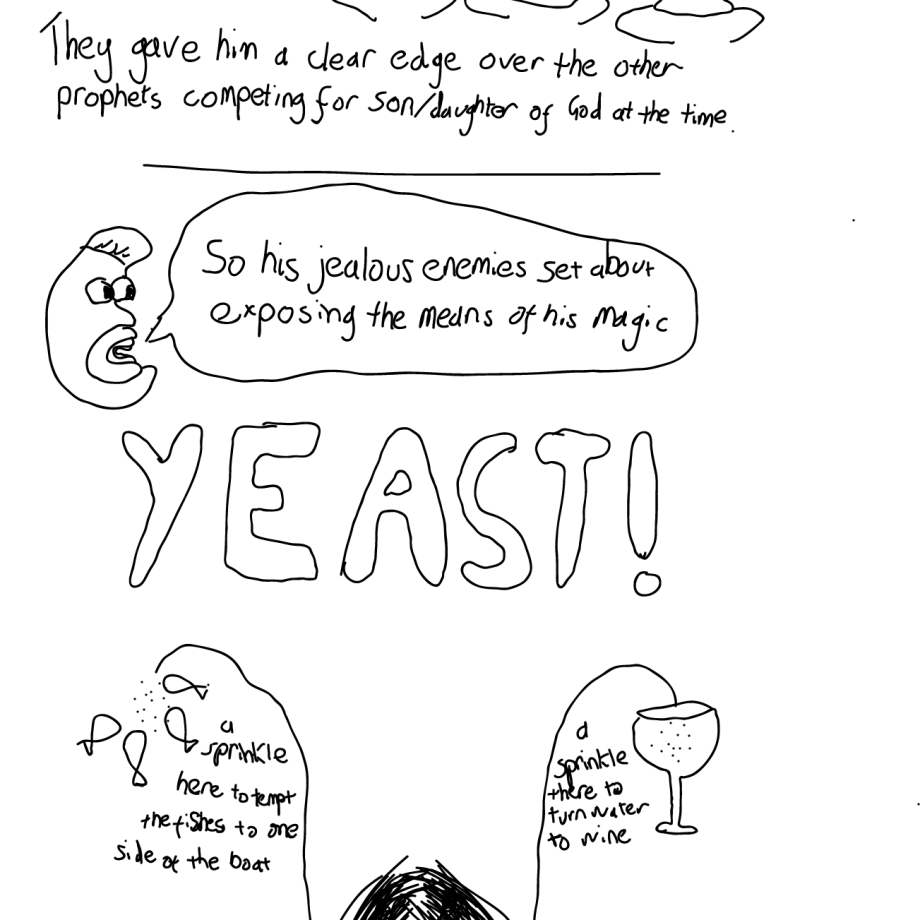 They gave him a clear edge over the other
prophets competing for son/daughter of God at the time.
So his jealous enemies set about
exposing the means of his magic
YEAST!
a
sprinkle
here to tempt
the fishes to one
side of the boat
a
sprinkle
there to
turn water
to wine